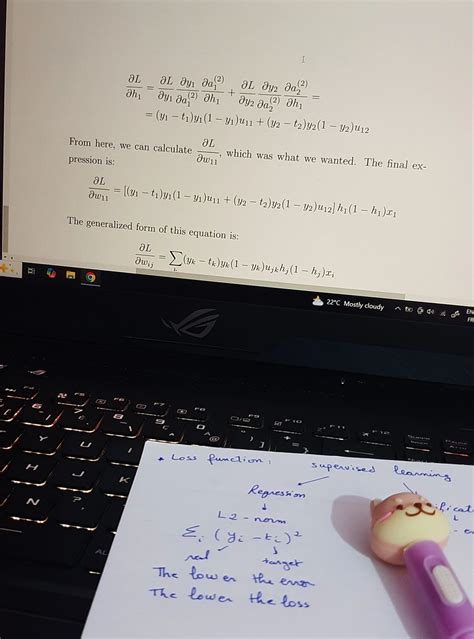 ∂L/∂h₁ = ∂L/∂y₁ ∂y₁/∂a₁⁽²⁾ ∂a₁⁽²⁾/∂h₁ + ∂L/∂y₂ ∂y₂/∂a₂⁽²⁾ ∂a₂⁽²⁾/∂h₁ =
= (y₁ − t₁)y₁(1 − y₁)u₁₁ + (y₂ − t₂)y₂(1 − y₂)u₁₂
From here, we can calculate ∂L/∂w₁₁, which was what we wanted. The final ex-
pression is:
∂L/∂w₁₁ = [(y₁ − t₁)y₁(1 − y₁)u₁₁ + (y₂ − t₂)y₂(1 − y₂)u₁₂] h₁(1 − h₁)x₁
The generalized form of this equation is:
∂L/∂wᵢⱼ = ∑(yₖ − tₖ)yₖ(1 − yₖ)uⱼₖhⱼ(1 − hⱼ)xᵢ
22°C Mostly cloudy
• Loss function: supervised learning
Regression
L2-norm
Σᵢ (yᵢ − tᵢ)²
real target
The lower the error
The lower the loss